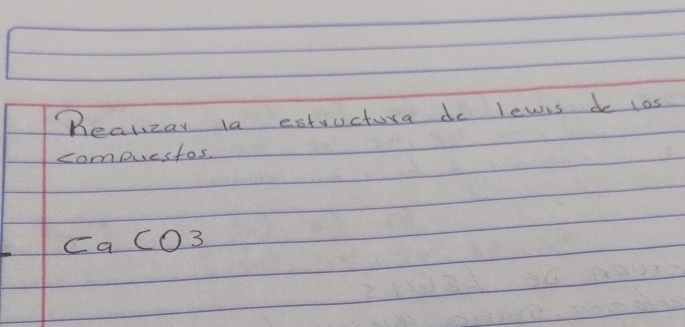 Realizar la estructura de lewis de los
compuestos.
CaCO3